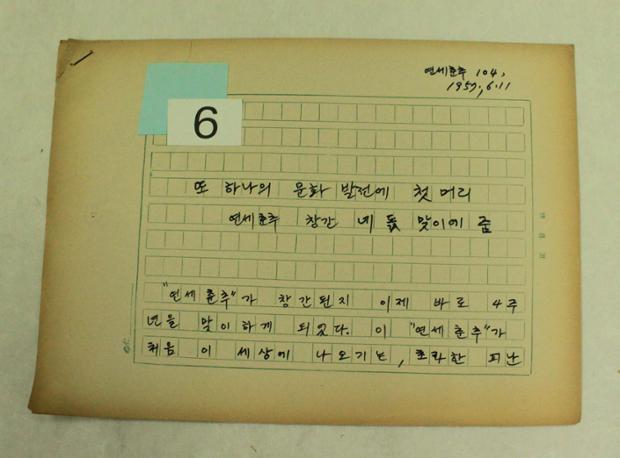 연세춘추 104,
1957. 6. 11
6
또 하나의 문화 발전에 첫 머리
연세춘추 창간 네 돐 맞이에 줌
"연세춘추"가 창간된지 이제 바로 4주
년을 맞이하게 되었다. 이 "연세춘추"가
처음 이 세상에 나오기는, 초라한 피난